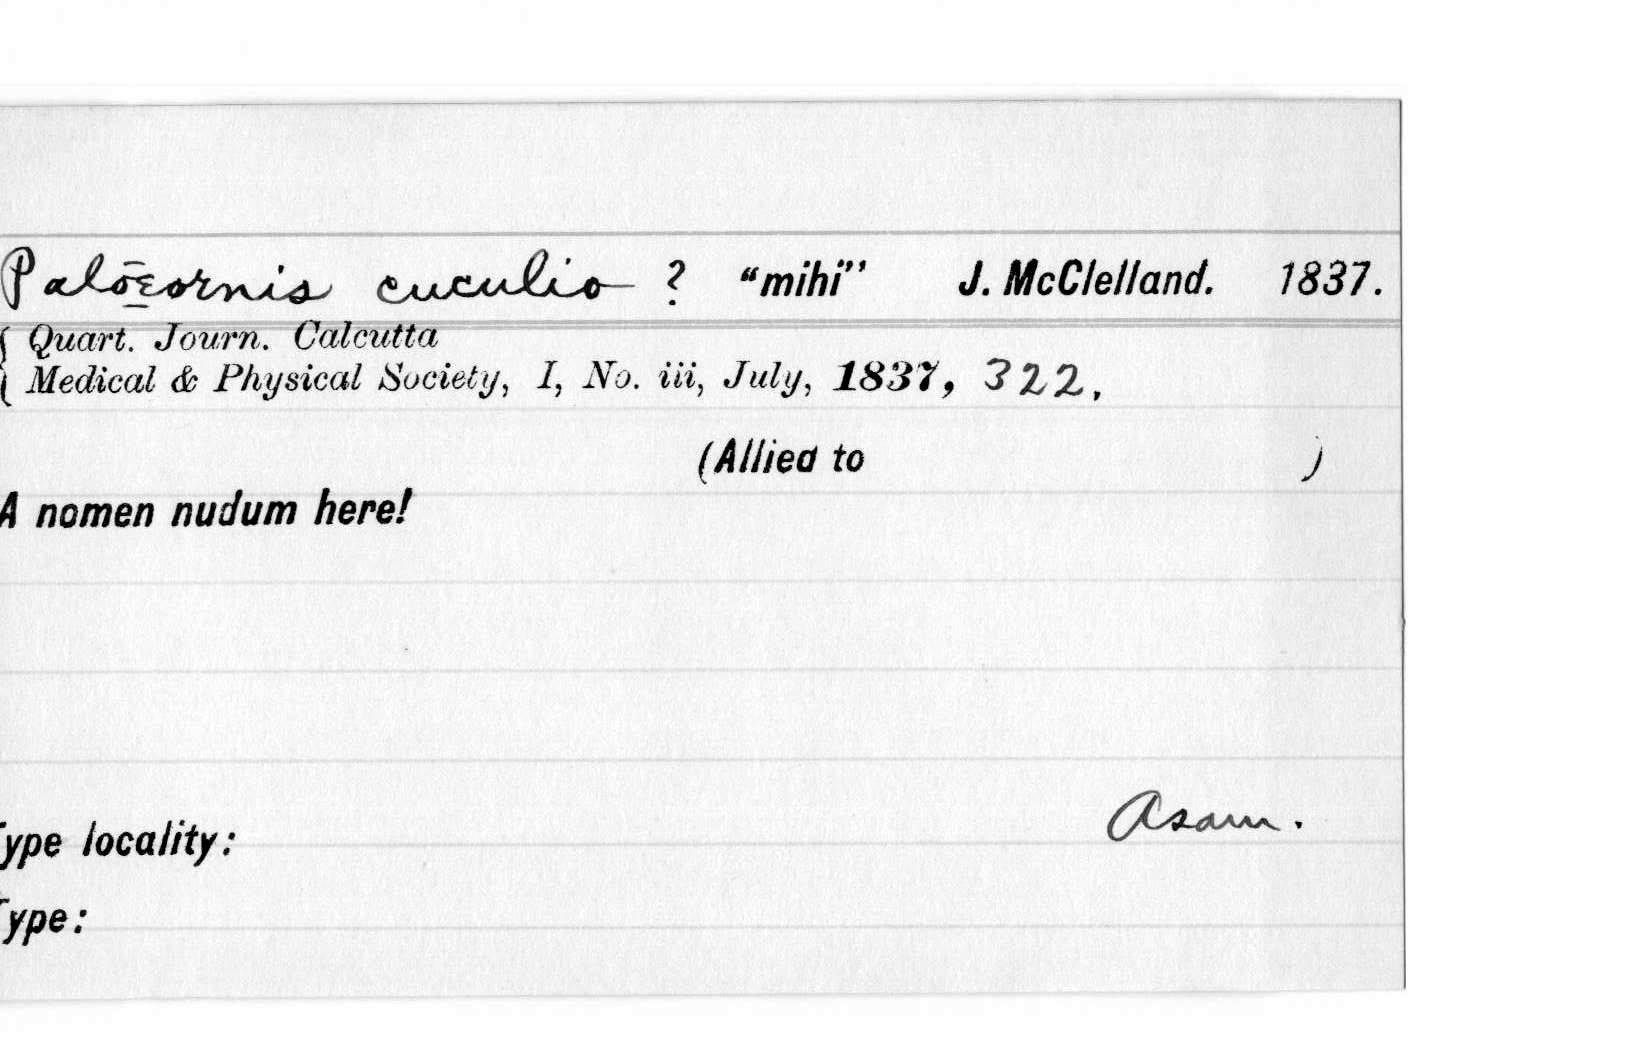 Palœornis cuculio ? “mihi” J. McClelland. 1837.
Quart. Journ. Calcutta
Medical & Physical Society, I, No. iii, July, 1837, 322.
(Allied to )
A nomen nudum here!
Asam.
Type locality:
Type: